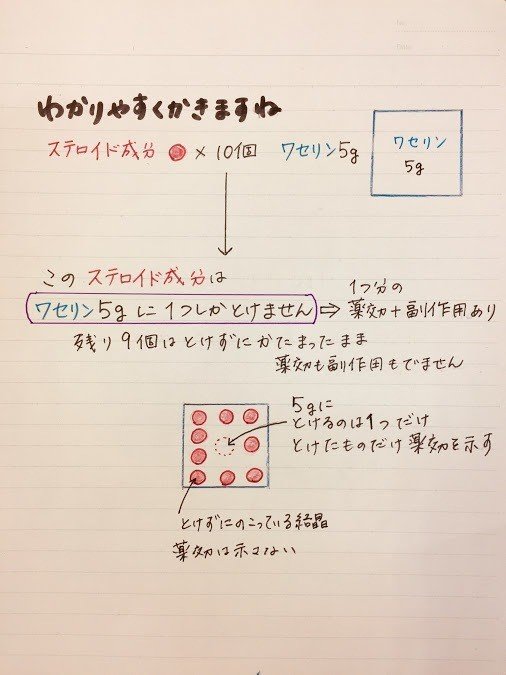 わかりやすくかきますね
ステロイド成分 ● × 10個 ワセリン5g
ワセリン
5g
この ステロイド成分は
ワセリン5gに1つしかとけません ⇨ 1つ分の
薬効+副作用あり
残り9個はとけずにかたまったまま
薬効も副作用もでません
5gに
とけるのは1つだけ
とけたものだけ薬効を示す
とけずにのこっている結晶
薬効は示さない